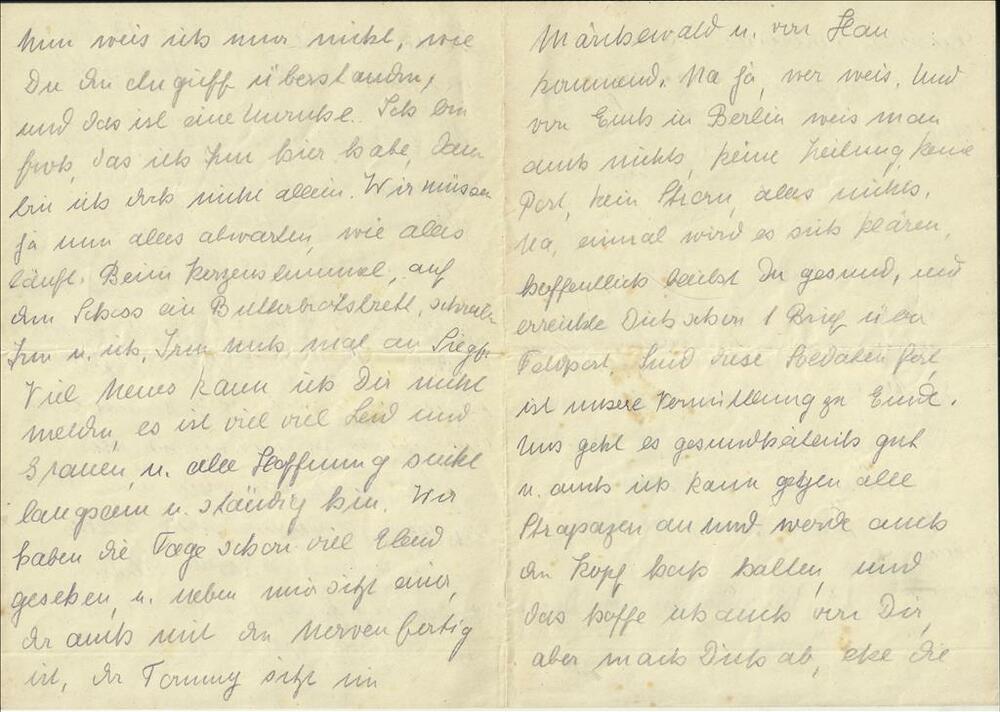 Nun weis ich nur nicht, wie
Du den Angriff überstanden,
und das ist eine Unruhe. Ich bin
froh, das ich Irm hier habe, dann
bin ich doch nicht allein. Wir müssen
ja nun alles abwarten, wie alles
läuft. Beim Kerzenstummel, auf
dem Schoss ein Butterbrotsbrett, schreiben
Irm u. ich. Irm auch mal an Siegb.
Viel Neues kann ich Dir nicht
melden, es ist viel viel Leid und
Grauen, u. alle Hoffnung sinkt
langsam u. ständig hin. Wir
haben die Tage schon viel Elend
gesehen, u. neben mir sitzt einer,
der auch mit den Nerven fertig
ist, der Tommy sitzt im
u. von
kommend. Na ja, wer weis. Und
von Euch in Berlin weis man
auch nichts, keine Zeitung, keine
Post, kein Strom, alles nichts.
Na, einmal wird es sich klären,
hoffentlich bleibst Du gesund, und
erreichte Dich schon 1 Brief über
Feldpost. Sind diese Soldaten fort,
ist unsere Vermittlung zu Ende.
Uns geht es gesundheitlich gut
u. auch ich kann gegen alle
Strapazen an und werde auch
den Kopf hoch halten, und
das hoffe ich auch von Dir,
aber mach Dich ab, ehe die